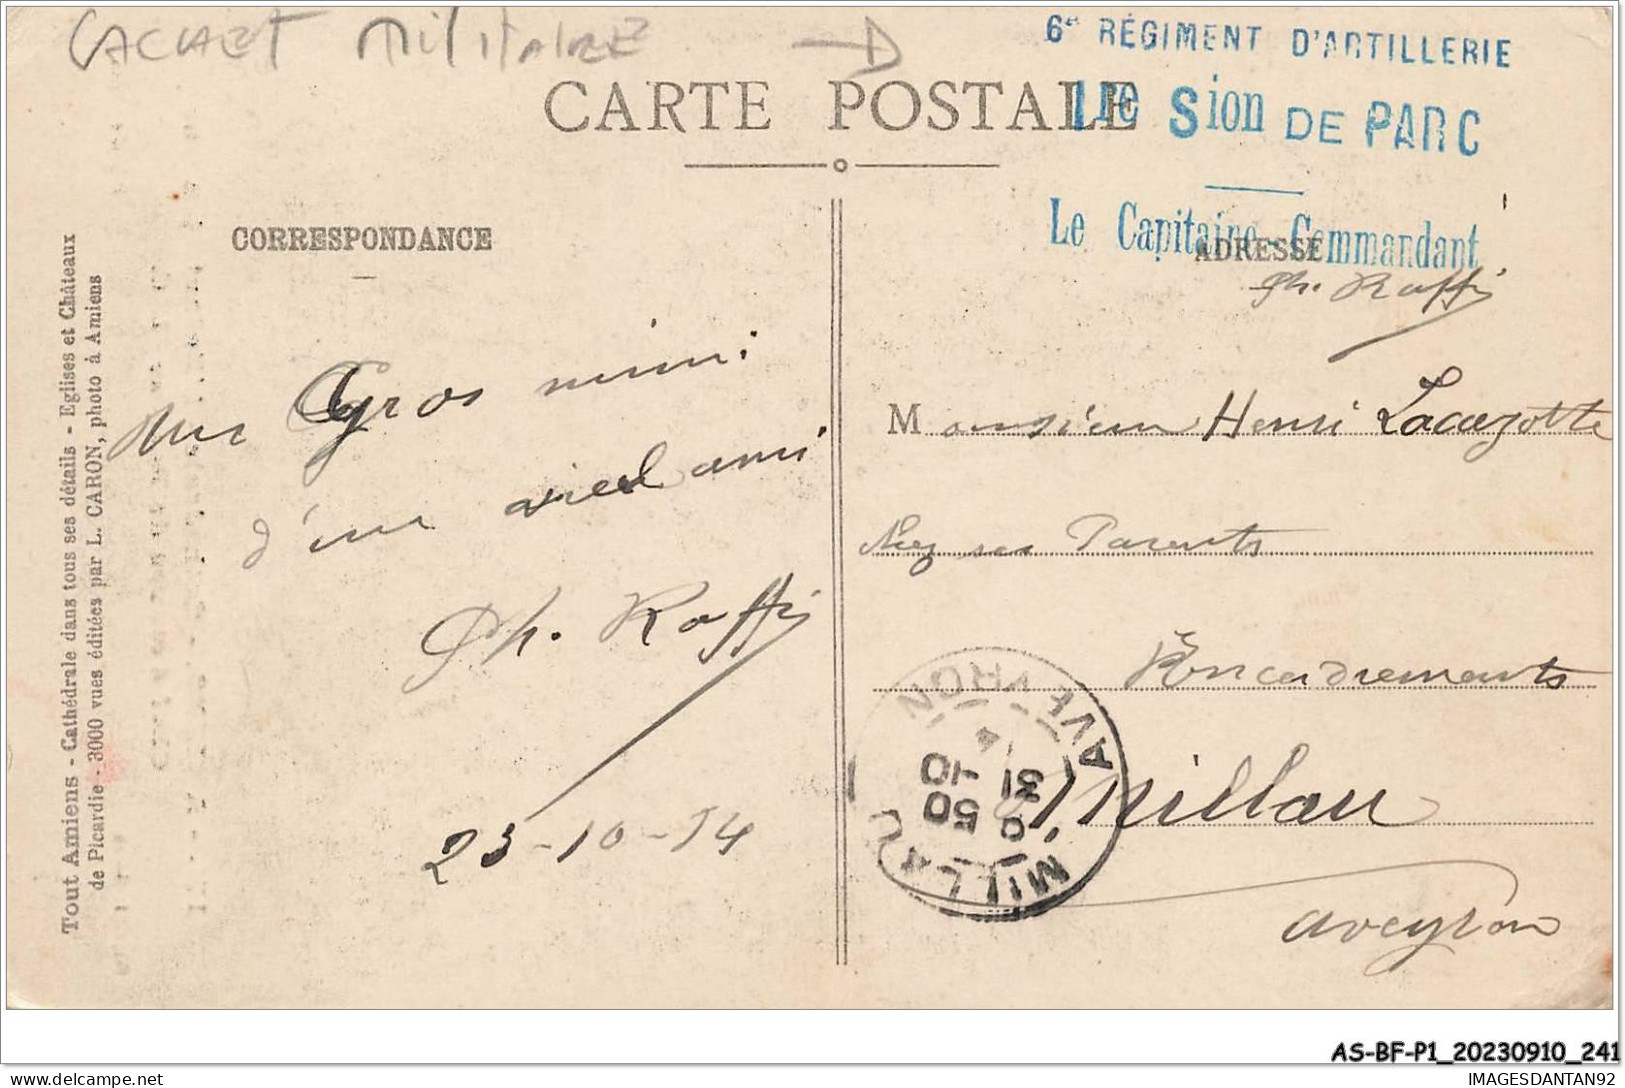 CACHET MILITAIRE
6e RÉGIMENT D'ARTILLERIE
CARTE POSTALE
1re Sion DE PARC
Le Capitaine-Commandant
CORRESPONDANCE
ADRESSE
Ph. Raffi
Tout Amiens - Cathédrale dans tous ses détails - Eglises et Châteaux
de Picardie - 3000 vues éditées par L. CARON, photo à Amiens
un Gros mimi
d'un vieil ami
Ph. Raffi
23-10-14
Monsieur Henri Lacazotte
chez ses Parents
Encadrements
Millau
Aveyron
MILLAU AVEYRON
0 50
31 10
AS-BF-P1_20230910_241
IMAGESDANTAN92